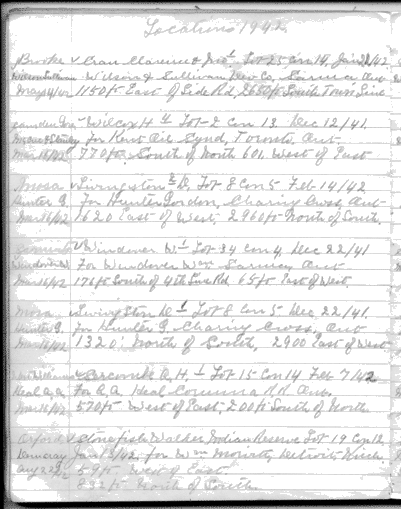 Locations 1942
Brooke v Cran Clarence & Lot 25 Con 14, Jan 42
Wilson Sullivan Wilson & Sullivan Dev Co, Sarnia Ont
May 4/42 1150 ft East of Side Rd, 2650 ft South Town Line
Camden v Wilcox H Lot 2 Con 13. Dec 12/41
for Kent Oil Synd, Toronto, Ont
Mar 16/42 770 ft South of North 601, West of East
Mosa v Livingston D, Lot 8 Con 5 Feb 14/42
Hunter G. for Hunter Gordon, Charing Cross, Ont
Mar 16/42 1620 East of West, 2960 ft North of South.
v Windover Wm Lot 34 Con 4, Dec 22/41
Windover W for Windover Wm Sarnia Ont
Mar 16/42 176 ft South of 4th Line Rd 65 ft East of West
Mosa v Livingston D Lot 8 Con 5 Dec 22/41
Hunter G. for Hunter G, Charing Cross, Ont
Mar 16/42 1320' North of South, 2900 East of West
v H. Lot 15 Con 14 Feb 7/42
Heal A.A. For A.A. Heal Corunna R.R. Ont.
Mar 16/42 570 ft West of East, 200 ft South of North
Orford v Walker Indian Reserve Lot 19 Con 12,
Jan 13/42, for Wm Moriaty, Detroit Mich.
Aug 22/42 59 ft West of East
892 ft North of South.